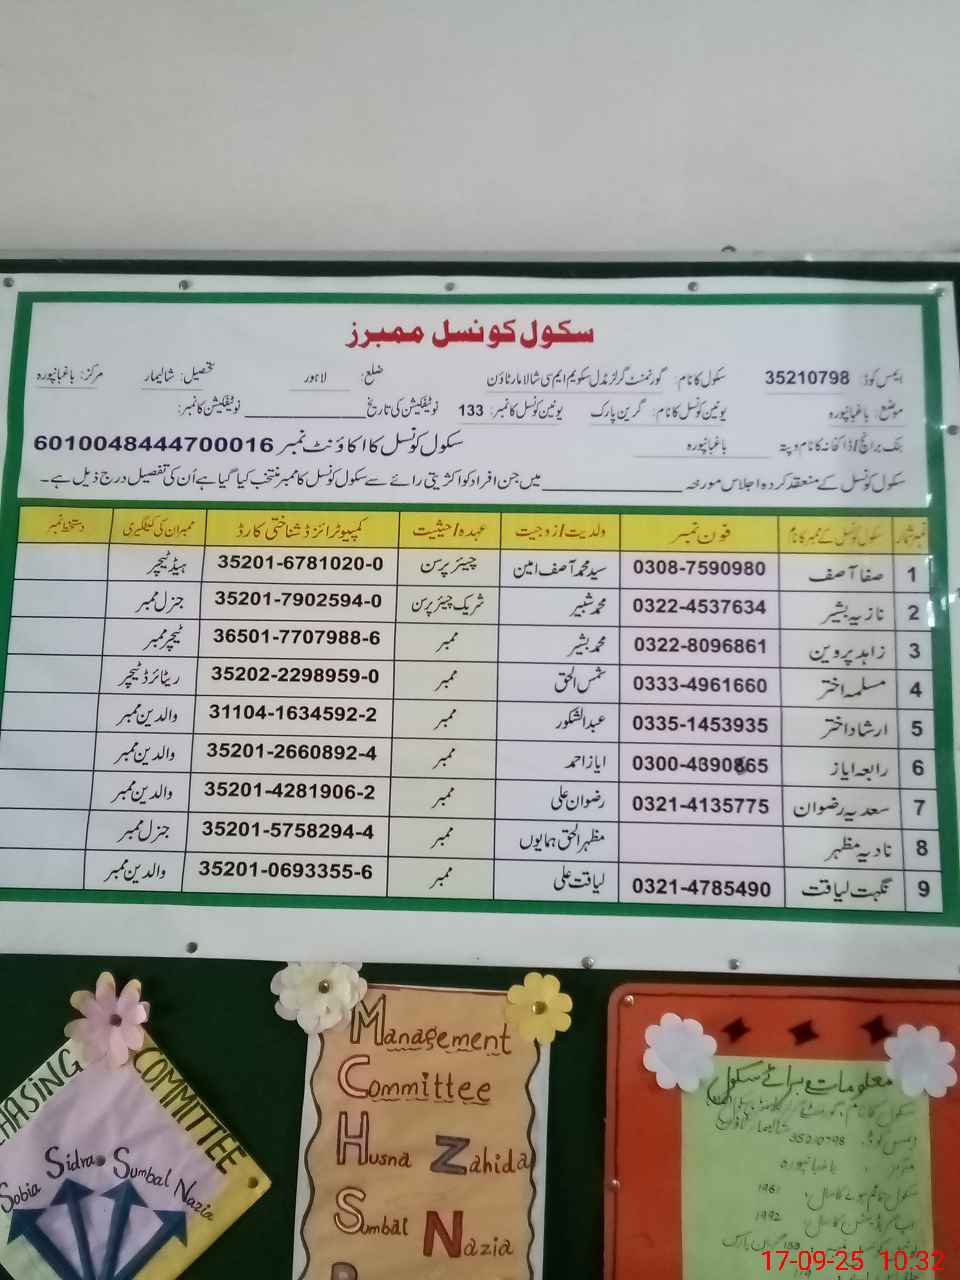 سکول کونسل ممبرز
ایمس کوڈ: 35210798 سکول کا نام: گورنمنٹ گرلز مڈل سکول ایم سی شالامار ٹاؤن ضلع: لاہور تحصیل: شالیمار مرکز: باغبانپورہ
موضع: باغبانپورہ یونین کونسل کا نام: گرین پارک یونین کونسل کا نمبر: 133 نوٹیفکیشن کی تاریخ نوٹیفکیشن کا نمبر:
بنک برانچ/ڈاکخانہ کا نام و پتہ باغبانپورہ سکول کونسل کا اکاؤنٹ نمبر 6010048444700016
سکول کونسل کے منعقد کردہ اجلاس مورخہ میں جن افراد کو اکثریتی رائے سے سکول کونسل کا ممبر منتخب کیا گیا ہے اُن کی تفصیل درج ذیل ہے۔
نمبر شمار سکول کونسل کے ممبر کا نام فون نمبر ولدیت/زوجیت عہدہ/حیثیت کمپیوٹرائزڈ شناختی کارڈ ممبران کی کیٹگری دستخط نمبر
1 صفا آصف 0308-7590980 سید محمد آصف امین چیئر پرسن 35201-6781020-0 ہیڈ ٹیچر
2 نازیہ بشیر 0322-4537634 محمد شبیر شریک چیئر پرسن 35201-7902594-0 جنرل ممبر
3 زاہد پروین 0322-8096861 محمد بشیر ممبر 36501-7707988-6 ٹیچر ممبر
4 مسلمہ اختر 0333-4961660 شمس الحق ممبر 35202-2298959-0 ریٹائرڈ ٹیچر
5 ارشاد اختر 0335-1453935 عبدالشکور ممبر 31104-1634592-2 والدین ممبر
6 رابعہ ایاز 0300-4890865 ایاز احمد ممبر 35201-2660892-4 والدین ممبر
7 سعدیہ رضوان 0321-4135775 رضوان علی ممبر 35201-4281906-2 والدین ممبر
8 نادیہ مظہر مظہر الحق ہمایوں ممبر 35201-5758294-4 جنرل ممبر
9 نگہت لیاقت 0321-4785490 لیاقت علی ممبر 35201-0693355-6 والدین ممبر
HASING COMMITTEE
Sobia Sidra Sumbal Nazia
Management
Committee
Husna Zahida
Sumbal Nazia
معلومات برائے سکول
سکول کا نام:
شالیمار ٹاؤن
ایمس کوڈ: 35210798
مرکز: باغبانپورہ
سکول قائم ہونے کا سال: 1961
اپ گریڈیشن کا سال: 1992
گرین پارک
17-09-25 10:32